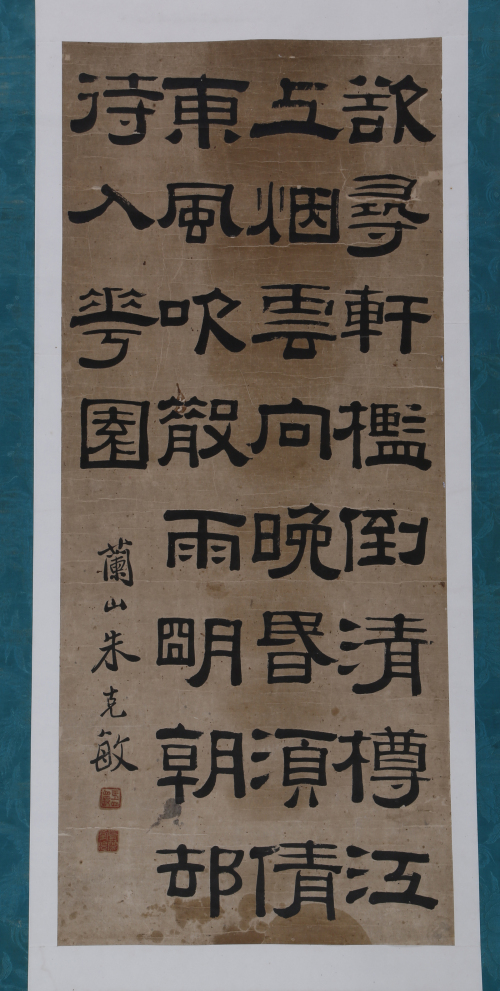 欲尋軒檻倒清樽江
上烟雲向晚昏湏倩
東風吹散雨朙朝却
待入華園
蘭山朱克敏